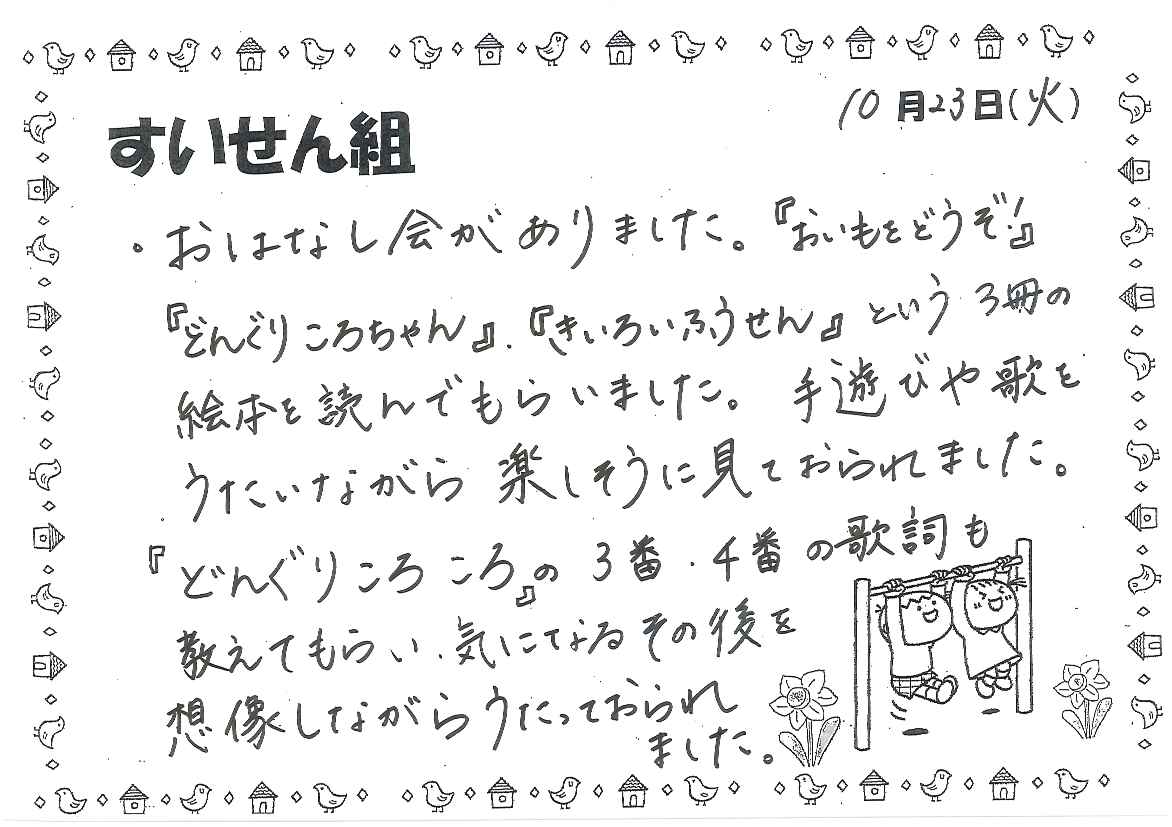 10月23日(火)
すいせん組
・おはなし会がありました。『おいもをどうぞ!』
『どんぐりころちゃん』、『きいろいふうせん』という3冊の
絵本を読んでもらいました。手遊びや歌を
うたいながら楽しそうに見ておられました。
『どんぐりころころ』の3番、4番の歌詞も
教えてもらい、気になるその後を
想像しながらうたっておられ
ました。